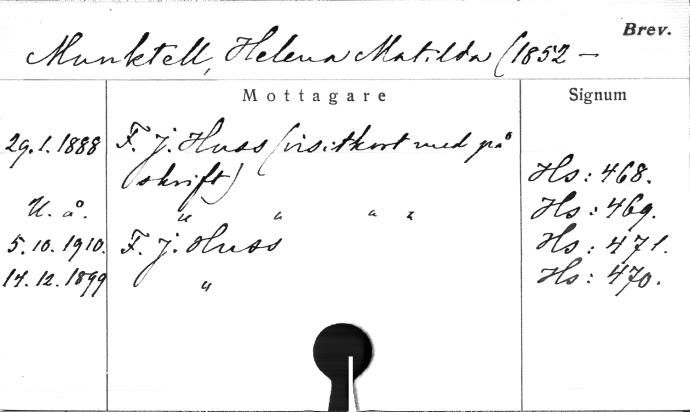 Brev.
Munktell, Helena Matilda (1852 –
Mottagare Signum
29.1.1888 F. J. Huss (visitkort med på
skrift) Hs: 468.
U. å. " " " " Hs: 469.
5.10.1910. F. J. Huss Hs: 471.
14.12.1899 " Hs: 470.